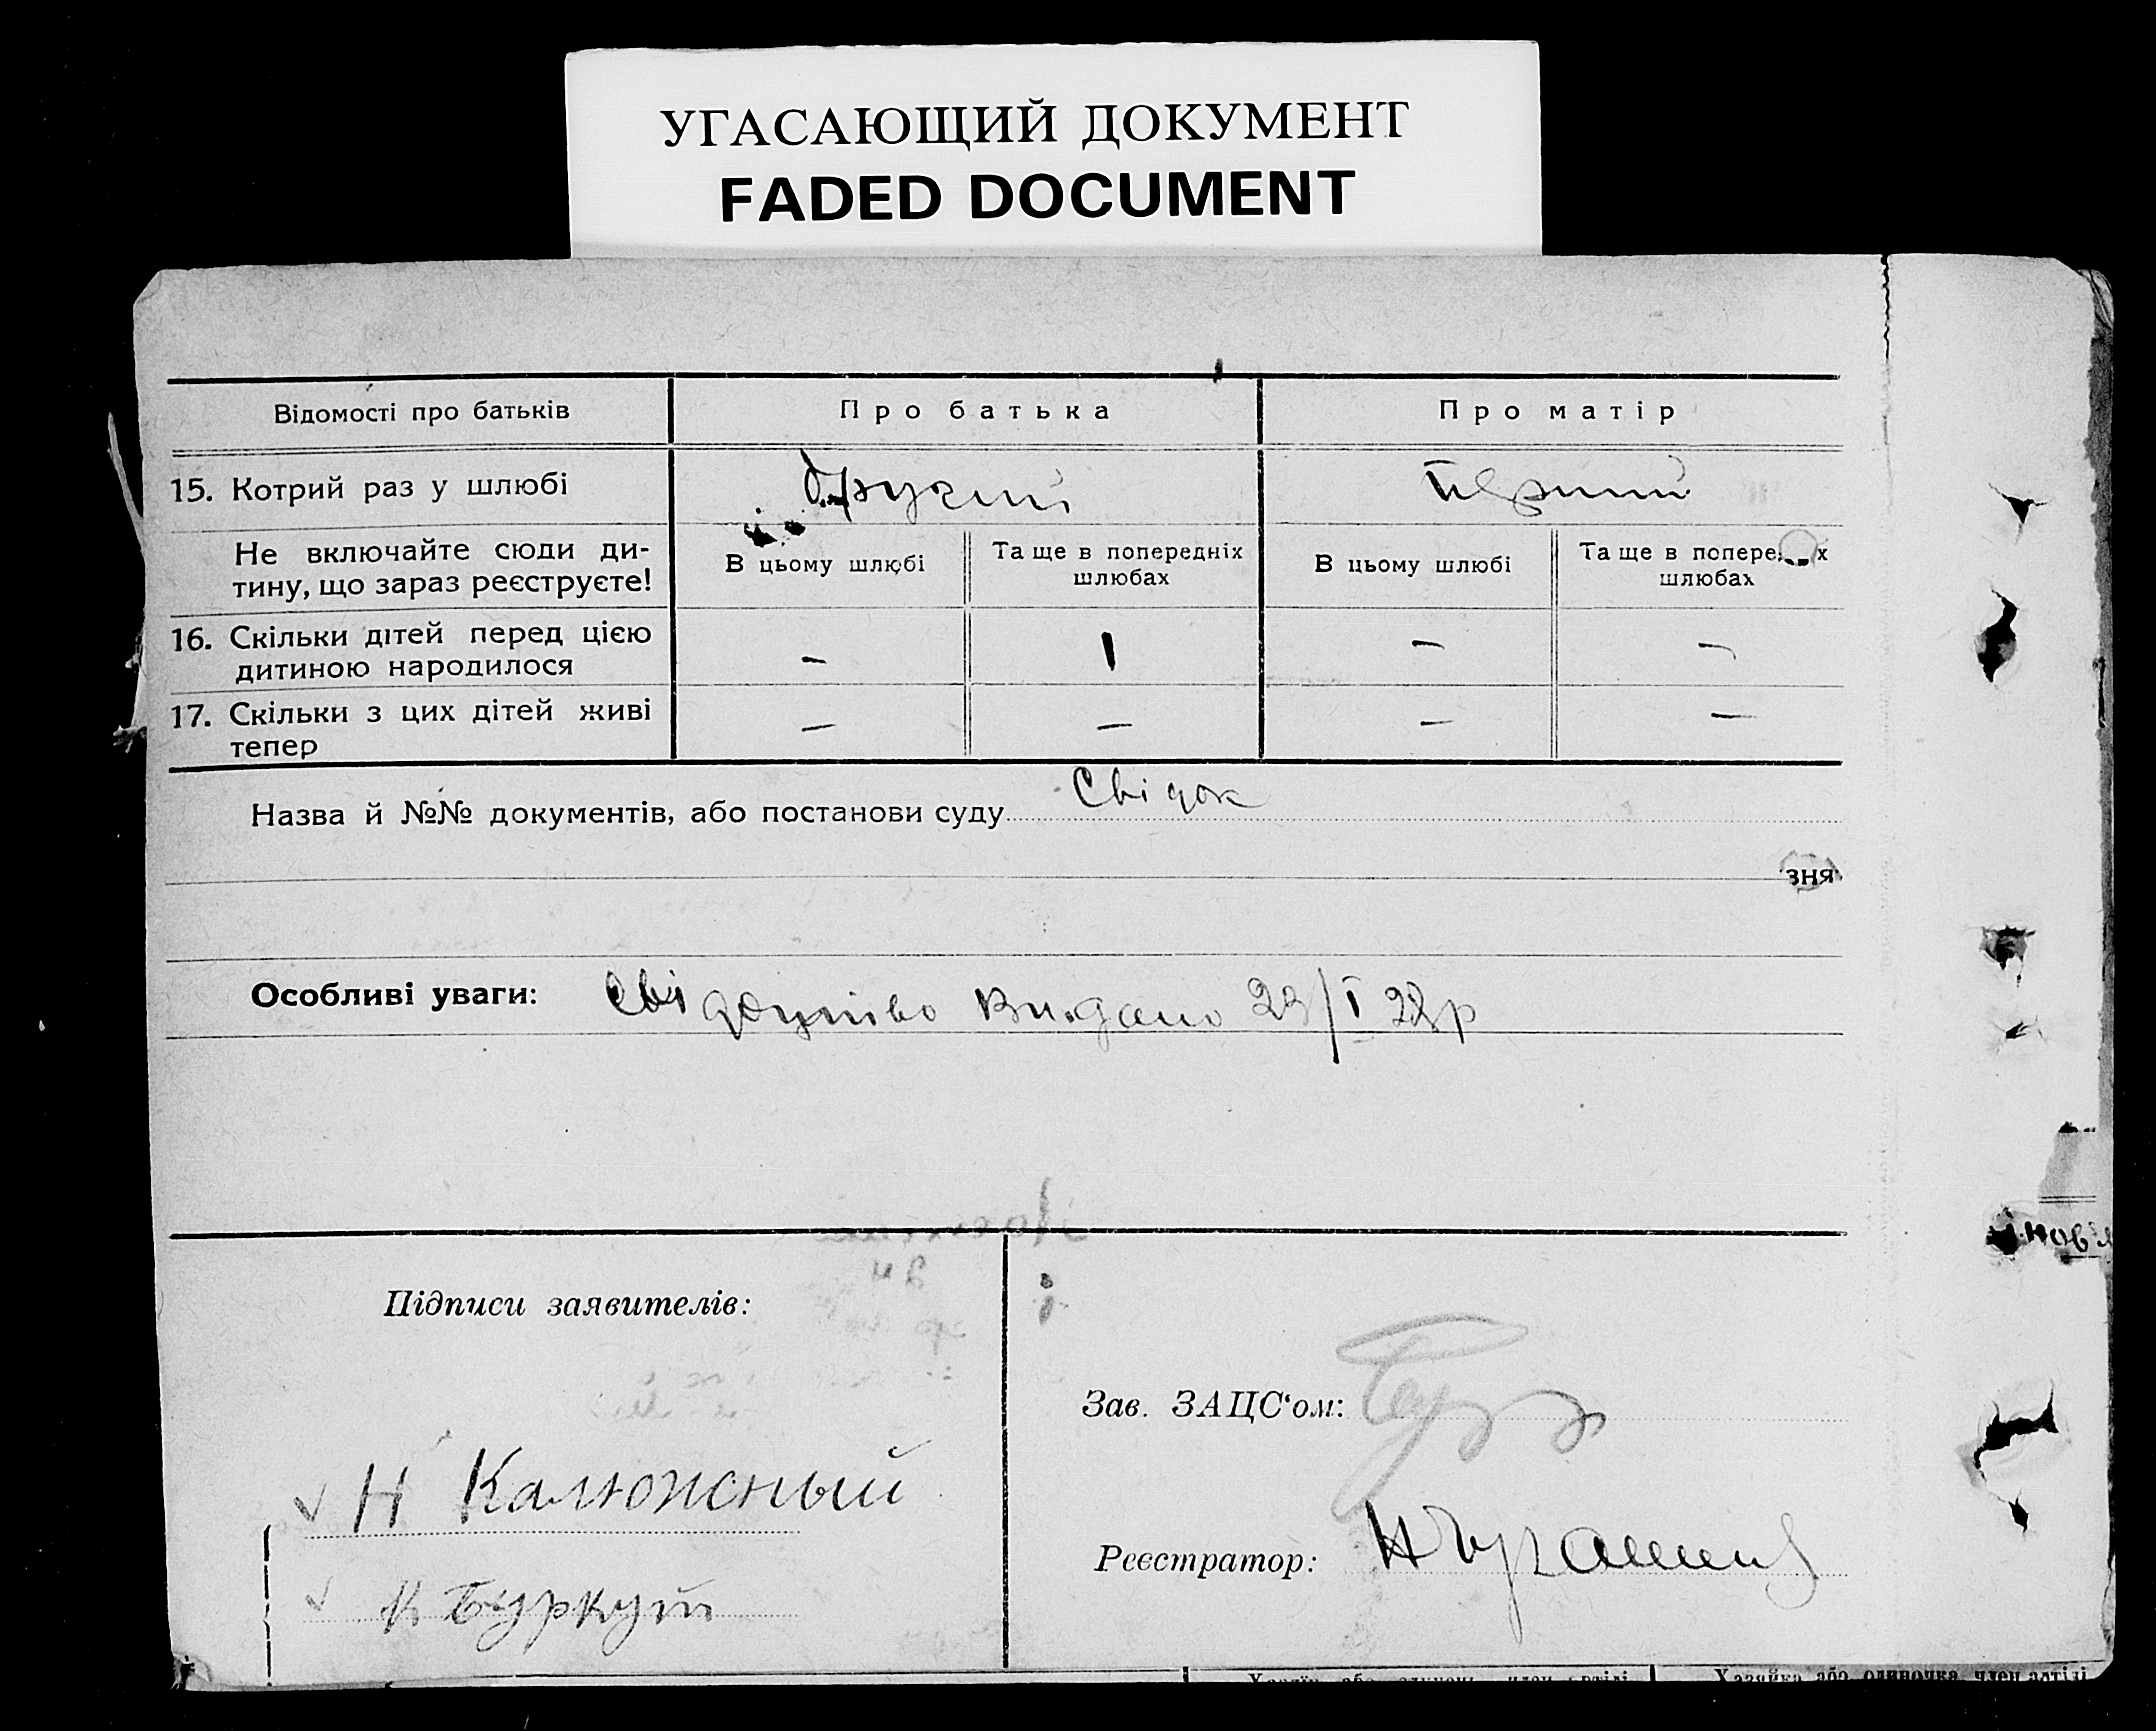 УГАСАЮЩИЙ ДОКУМЕНТ
FADED DOCUMENT
Відомості про батьків
Про батька
Про матір
15. Котрий раз у шлюбі
другий
перший
Не включайте сюди ди-
тину, що зараз реєструєте!
В цьому шлюбі
Та ще в попередніх
шлюбах
В цьому шлюбі
Та ще в попере х
шлюбах
16. Скільки дітей перед цією
дитиною народилося
–
1
–
–
17. Скільки з цих дітей живі
тепер
–
–
–
–
Назва й №№ документів, або постанови суду Свідок
зня
Особливі уваги: Свідоцтво Видано 23/I 28р
Підписи заявителів:
Зав. ЗАЦС‘ом:
Н Калюжный
Реєстратор:
К Буркут